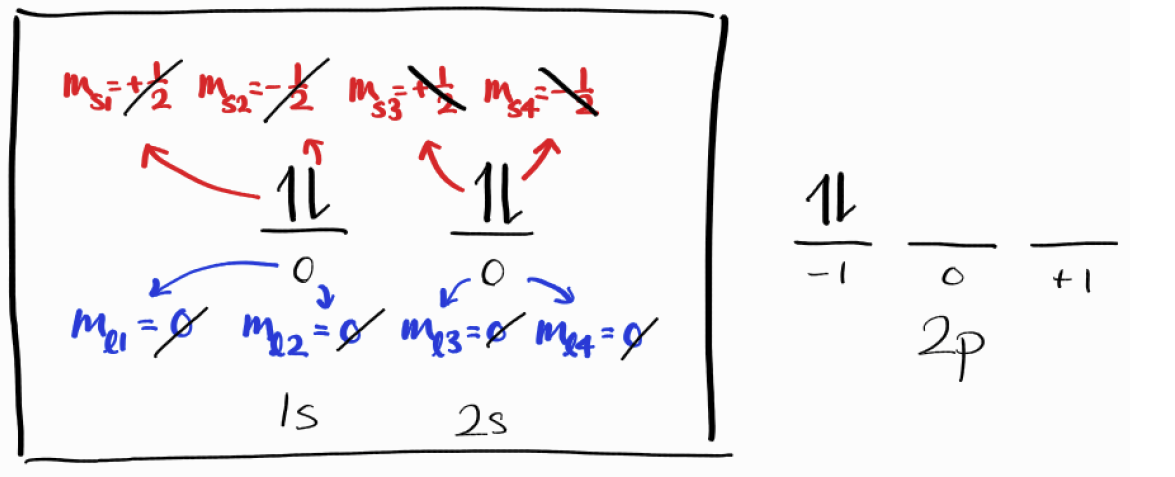 mₛ₁=+1/2 mₛ₂=-1/2 mₛ₃=+1/2 mₛ₄=-1/2
↿⇂ ↿⇂ ↿⇂
0 0 -1 0 +1
m_ℓ1 = 0 m_ℓ2 = 0 m_ℓ3 = 0 m_ℓ4 = 0
2p
1s 2s